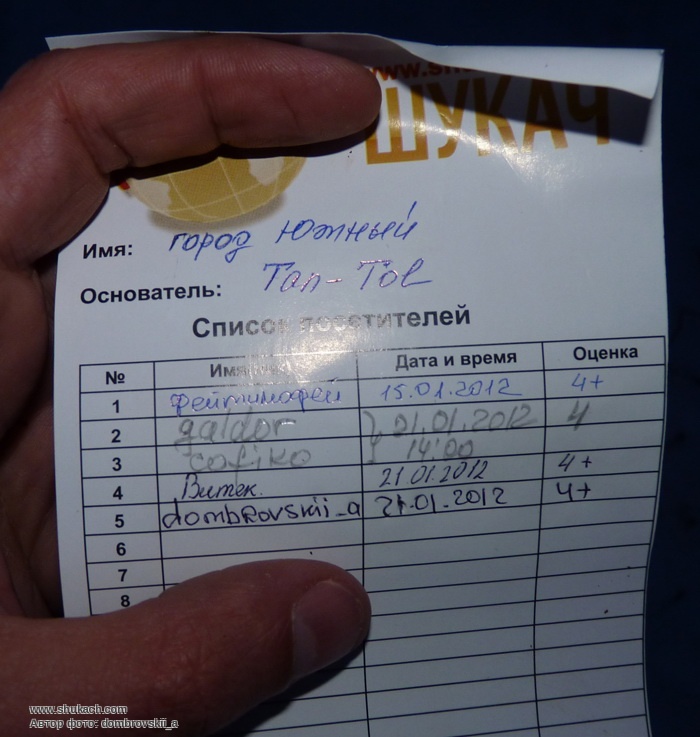 ШУКАЧ
Имя: город Южный
Основатель: Тап-Тов
Список посетителей
№ Дата и время Оценка
1 фейтимофей 15.01.2012 4+
2 galdor 01.01.2012 4
3 cofiko 14:00
4 Витек. 21.01.2012 4+
5 dombrovskii_a 21.01.2012 4+
6
7
8
www.shukach.com
Автор фото: dombrovskii_a